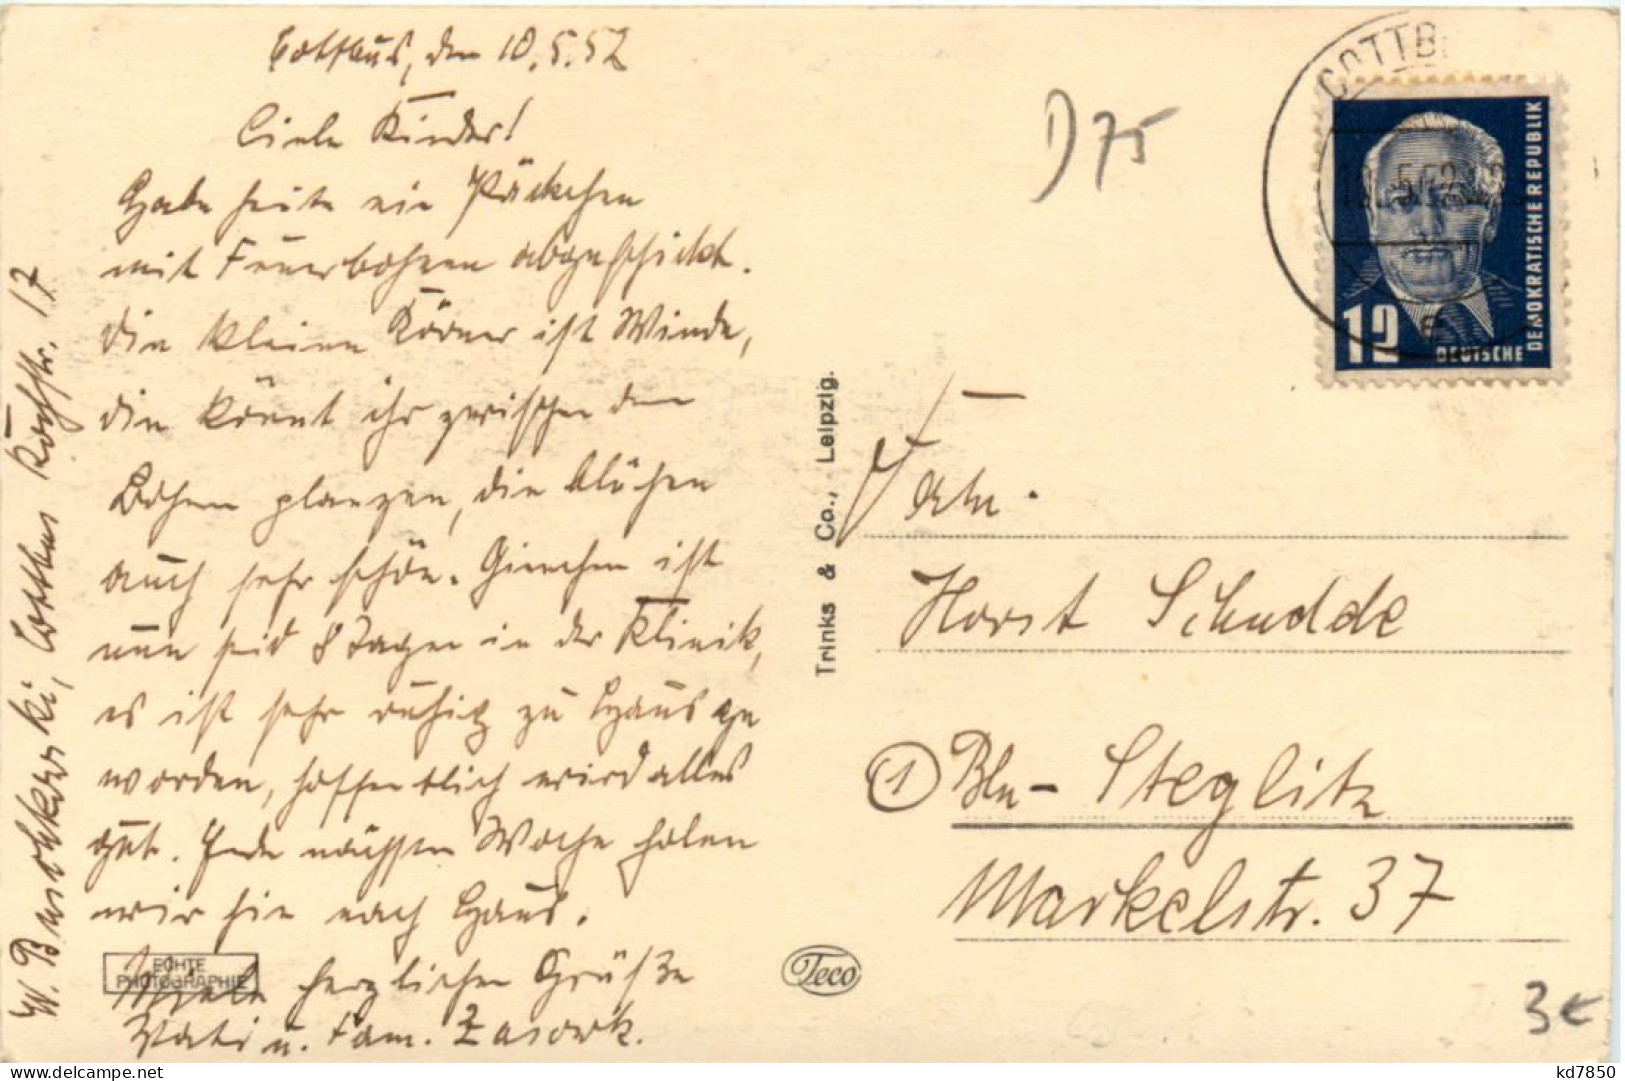 Cottbus, den 10.5.52
Liebe Kinder!
Habe heute ein Päckchen
mit Feuerbohnen abgeschickt.
Die kleinen Körner ist Winde,
die könnt ihr zwischen den
Bohnen planzen, die blühen
auch sehr schön. Gienchen ist
nun seid 8 Tagen in der Klinik,
es ist sehr ruhig zu Haus ge
worden, hoffentlich wird alles
gut. Ende nächsten Woche holen
wir sie nach Haus.
Viele herzlichen Grüße
Vati u. Fam. Zasowk.
W. Buschkowski, Cottbus Kochstr. 17
ECHTE
PHOTOGRAPHIE
Trinks & Co., Leipzig.
Teco
D 75
COTTB
12
DEUTSCHE
DEMOKRATISCHE REPUBLIK
Fam.
Horst Schudde
1 Bln-Steglitz
Markelstr. 37
3€
kd7850